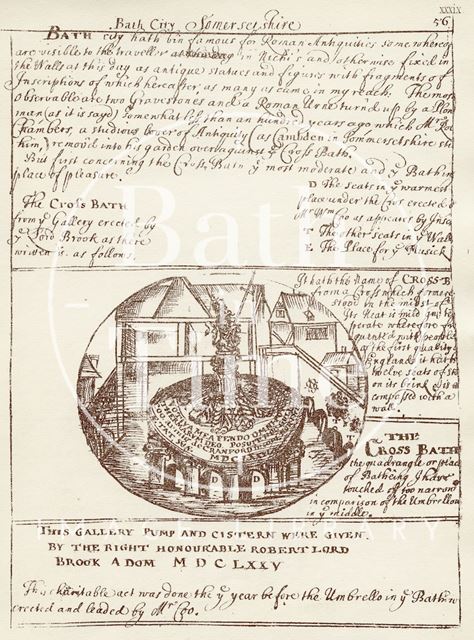 XXXIX
Bath City Somersetshire 56
BATH edy hath bin famous for Roman Antiquities some whereof
are visible to the traveller at this day in Nich's and otherwise fixed in
the Walls at this day as antique statues and figurs with fragments of
Inscriptions of which hereafter as many as came in my reach. The most
observable are two Gravestones and a Roman Urne turned up by a Plow
man (as it is say'd) somewhat less than an hundred years ago which Mr Ro
Chambers, a studious lover of Antiquity (as Cambden in Sommersetshire
him) remov'd into his garden over against ye Cross Bath.
But first concerning the Cross Bath ye most moderate and ye Bathin
place of pleasure.
The CROSS BATH
from ye Gallery erected by
ye Lord Brook as there
written is as follows.
D The seats in ye warmest
place under the Cros erected
Mr Coo as appears by
T The other seats in ye Wall
E The Place for ye Musick
It hath the name of CROSS B
from a Cross which formerly
stood in the midst of
Its Heat is mild and
perate wherefore
quented with people
of the first quality
England: it hath
twelve seats of
on its brink & is
compassed with a
wall.
THE
CROSS BATH
the quadrangle or place
of Batheing I have
touched of too narrow
in comparison of the Umbrello
in ye middle.
D D
THIS GALLERY PUMP AND CISTERN WERE GIVEN
BY THE RIGHT HONOURABLE ROBERT LORD
BROOK A DOM MDCLXXV
This charitable act was done the ye year before the Umbrello in ye Bath
erected and leaded by Mr Coo.
Bath
in
Time
IMAGE LIBRARY